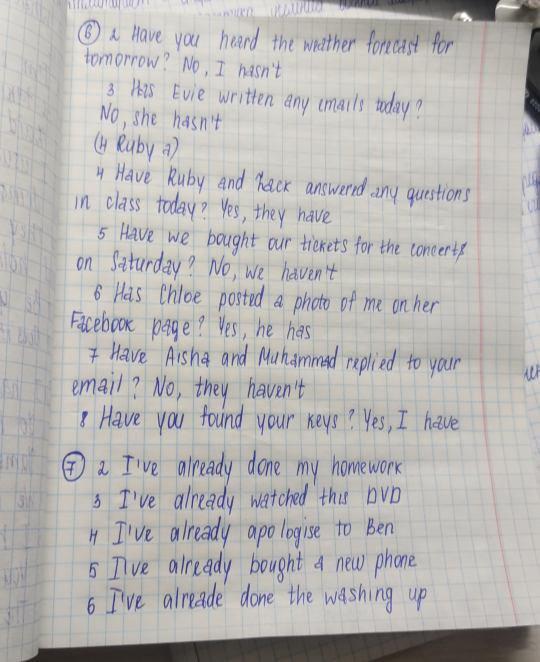 6 2 Have you heard the weather forecast for
tomorrow? No, I hasn't
3 Has Evie written any emails today?
No, she hasn't
(4 Ruby a)
4 Have Ruby and Zack answered any questions
in class today? Yes, they have
5 Have we bought our tickets for the concert
on Saturday? No, we haven't
6 Has Chloe posted a photo of me on her
Facebook page? Yes, he has
7 Have Aisha and Muhammad replied to your
email? No, they haven't
8 Have you found your keys? Yes, I have
7 2 I've already done my homework
3 I've already watched this DVD
4 I've already apologise to Ben
5 I've already bought a new phone
6 I've alreade done the washing up